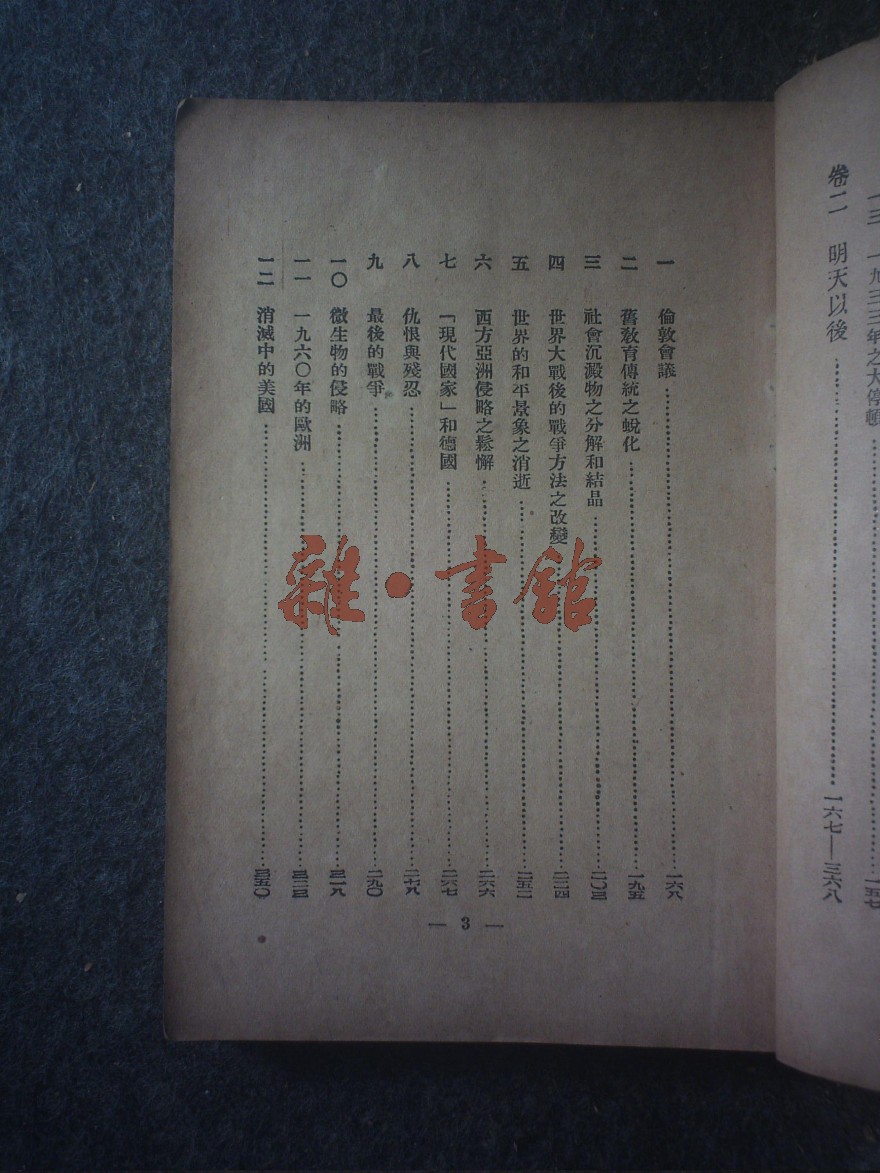 一三 一九三三年之大停頓……一五七
卷二 明天以後……一六七—三六八
一 倫敦會議……一六八
二 舊敎育傳統之蛻化……一九五
三 社會沉澱物之分解和結晶……二〇三
四 世界大戰後的戰爭方法之改變……二二四
五 世界的和平景象之消逝……二五二
六 西方亞洲侵略之鬆懈……二六六
七 「現代國家」和德國……二六七
八 仇恨與殘忍……二七八
九 最後的戰爭……二九〇
一〇 微生物的侵略……三一八
一一 一九六〇年的歐洲……三二三
一二 消滅中的美國……三五〇
— 3 —
雜·書館